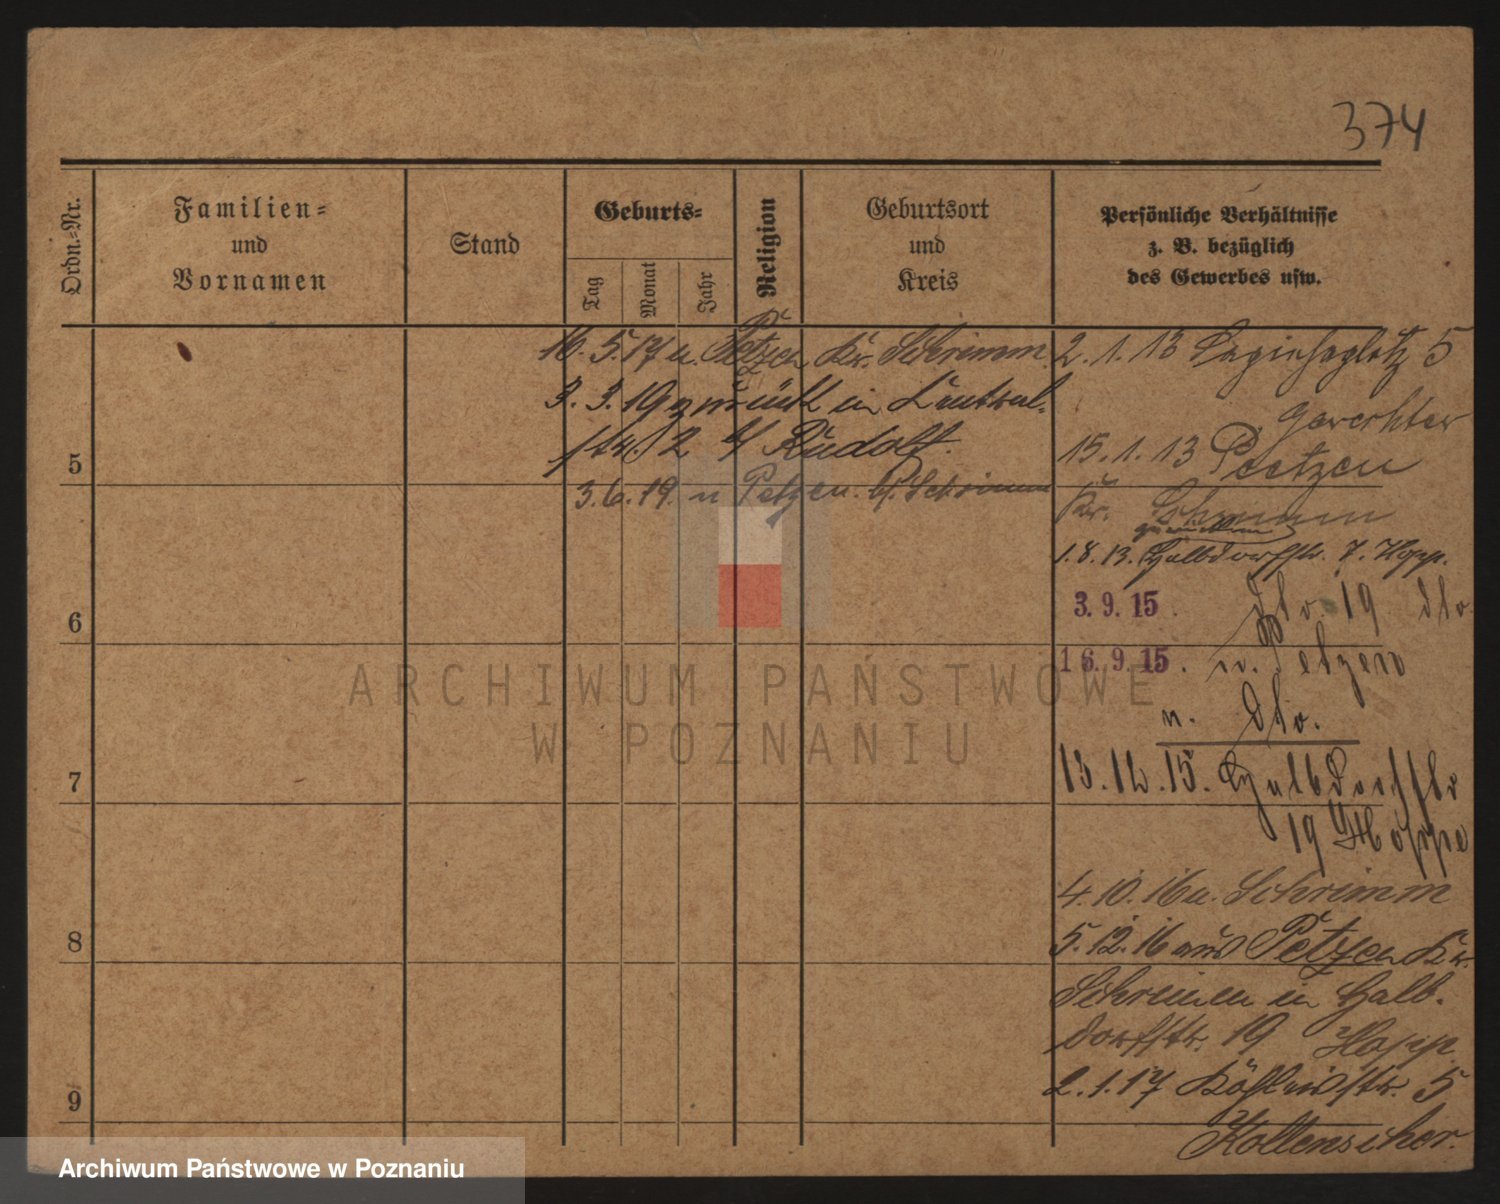 374
Ordn.=Nr.
Familien=
und
Vornamen
Stand
Geburts=
Tag
Monat
Jahr
Religion
Geburtsort
und
Kreis
Persönliche Verhältnisse
z. B. bezüglich
des Gewerbes usw.
16. 5. 17 u. Petzen Kr. Schrimm
3. 3. 19 zurück in
2 b/ Rudolf.
3. 6. 19. n Petzen. Schrimm
5
6
7
8
9
2. 1. 13 Sapiehaplatz 5
15. 1. 13 Peetzen
Kr. Schrimm
1. 8. 13. Halbdorfstr. 7. Hopp.
3. 9. 15. dto. 19 dto.
16. 9. 15. n. Petzen
n. dto.
13. 12. 15. Halbdorfstr
19 Hoppe
4. 10. 16 u. Schrimm
5. 12. 16 aus Petzen Kr.
Schrimm in Halb-
dorfstr. 19 Hopp
2. 1. 17 5
ARCHIWUM PAŃSTWOWE
W POZNANIU
Archiwum Państwowe w Poznaniu